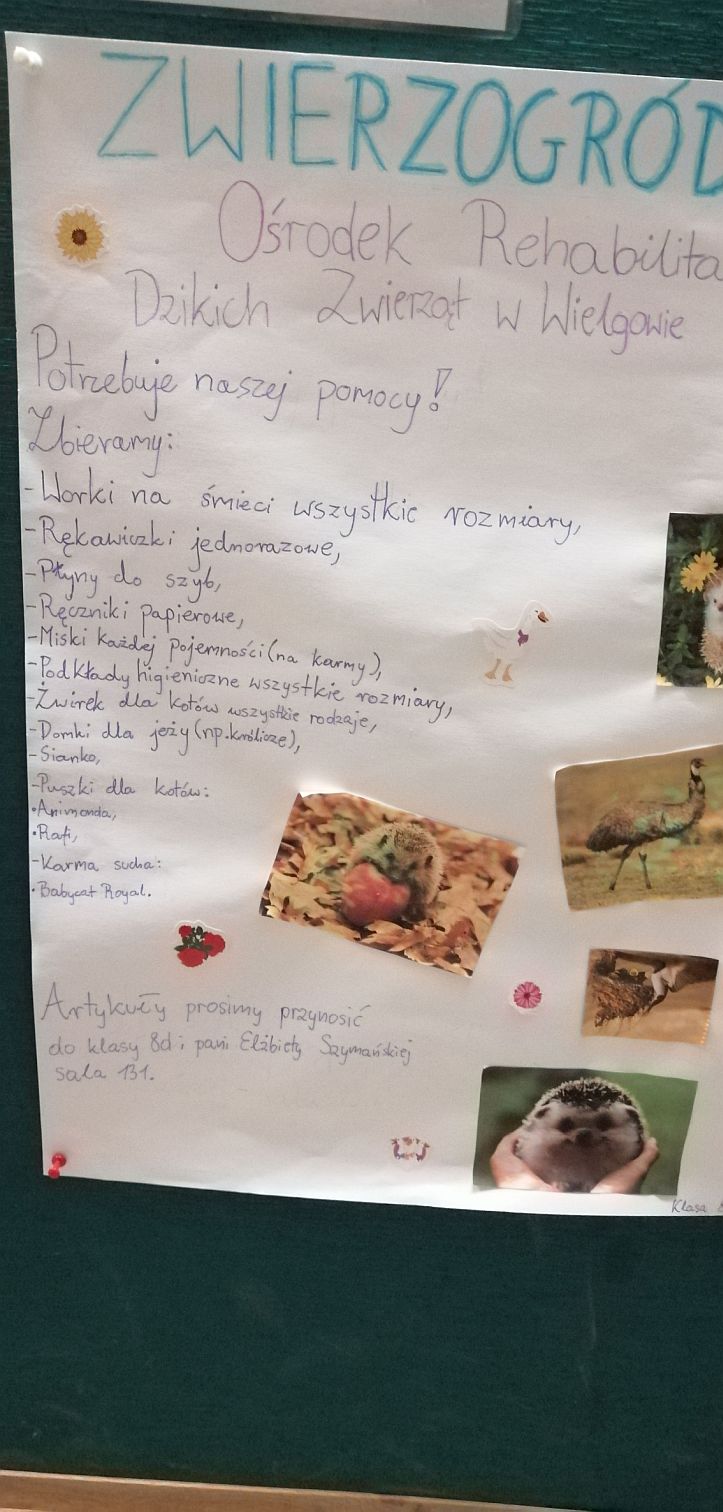 ZWIERZOGRÓD
Ośrodek Rehabilita
Dzikich Zwierząt w Wielgowie
Potrzebuje naszej pomocy!
Zbieramy:
-Worki na śmieci wszystkie rozmiary,
-Rękawiczki jednorazowe,
-Płyny do szyb,
-Ręczniki papierowe,
-Miski każdej pojemności (na karmy),
-Podkłady higieniczne wszystkie rozmiary,
-Żwirek dla kotów wszystkie rodzaje,
-Domki dla jeży (np. królicze),
-Sianko,
-Puszki dla kotów:
•Animonda,
•Rafi,
-Karma sucha:
•Babycat Royal.
Artykuły prosimy przynosić
do klasy 8d i pani Elżbiety Szymańskiej
sala 131.
Klasa